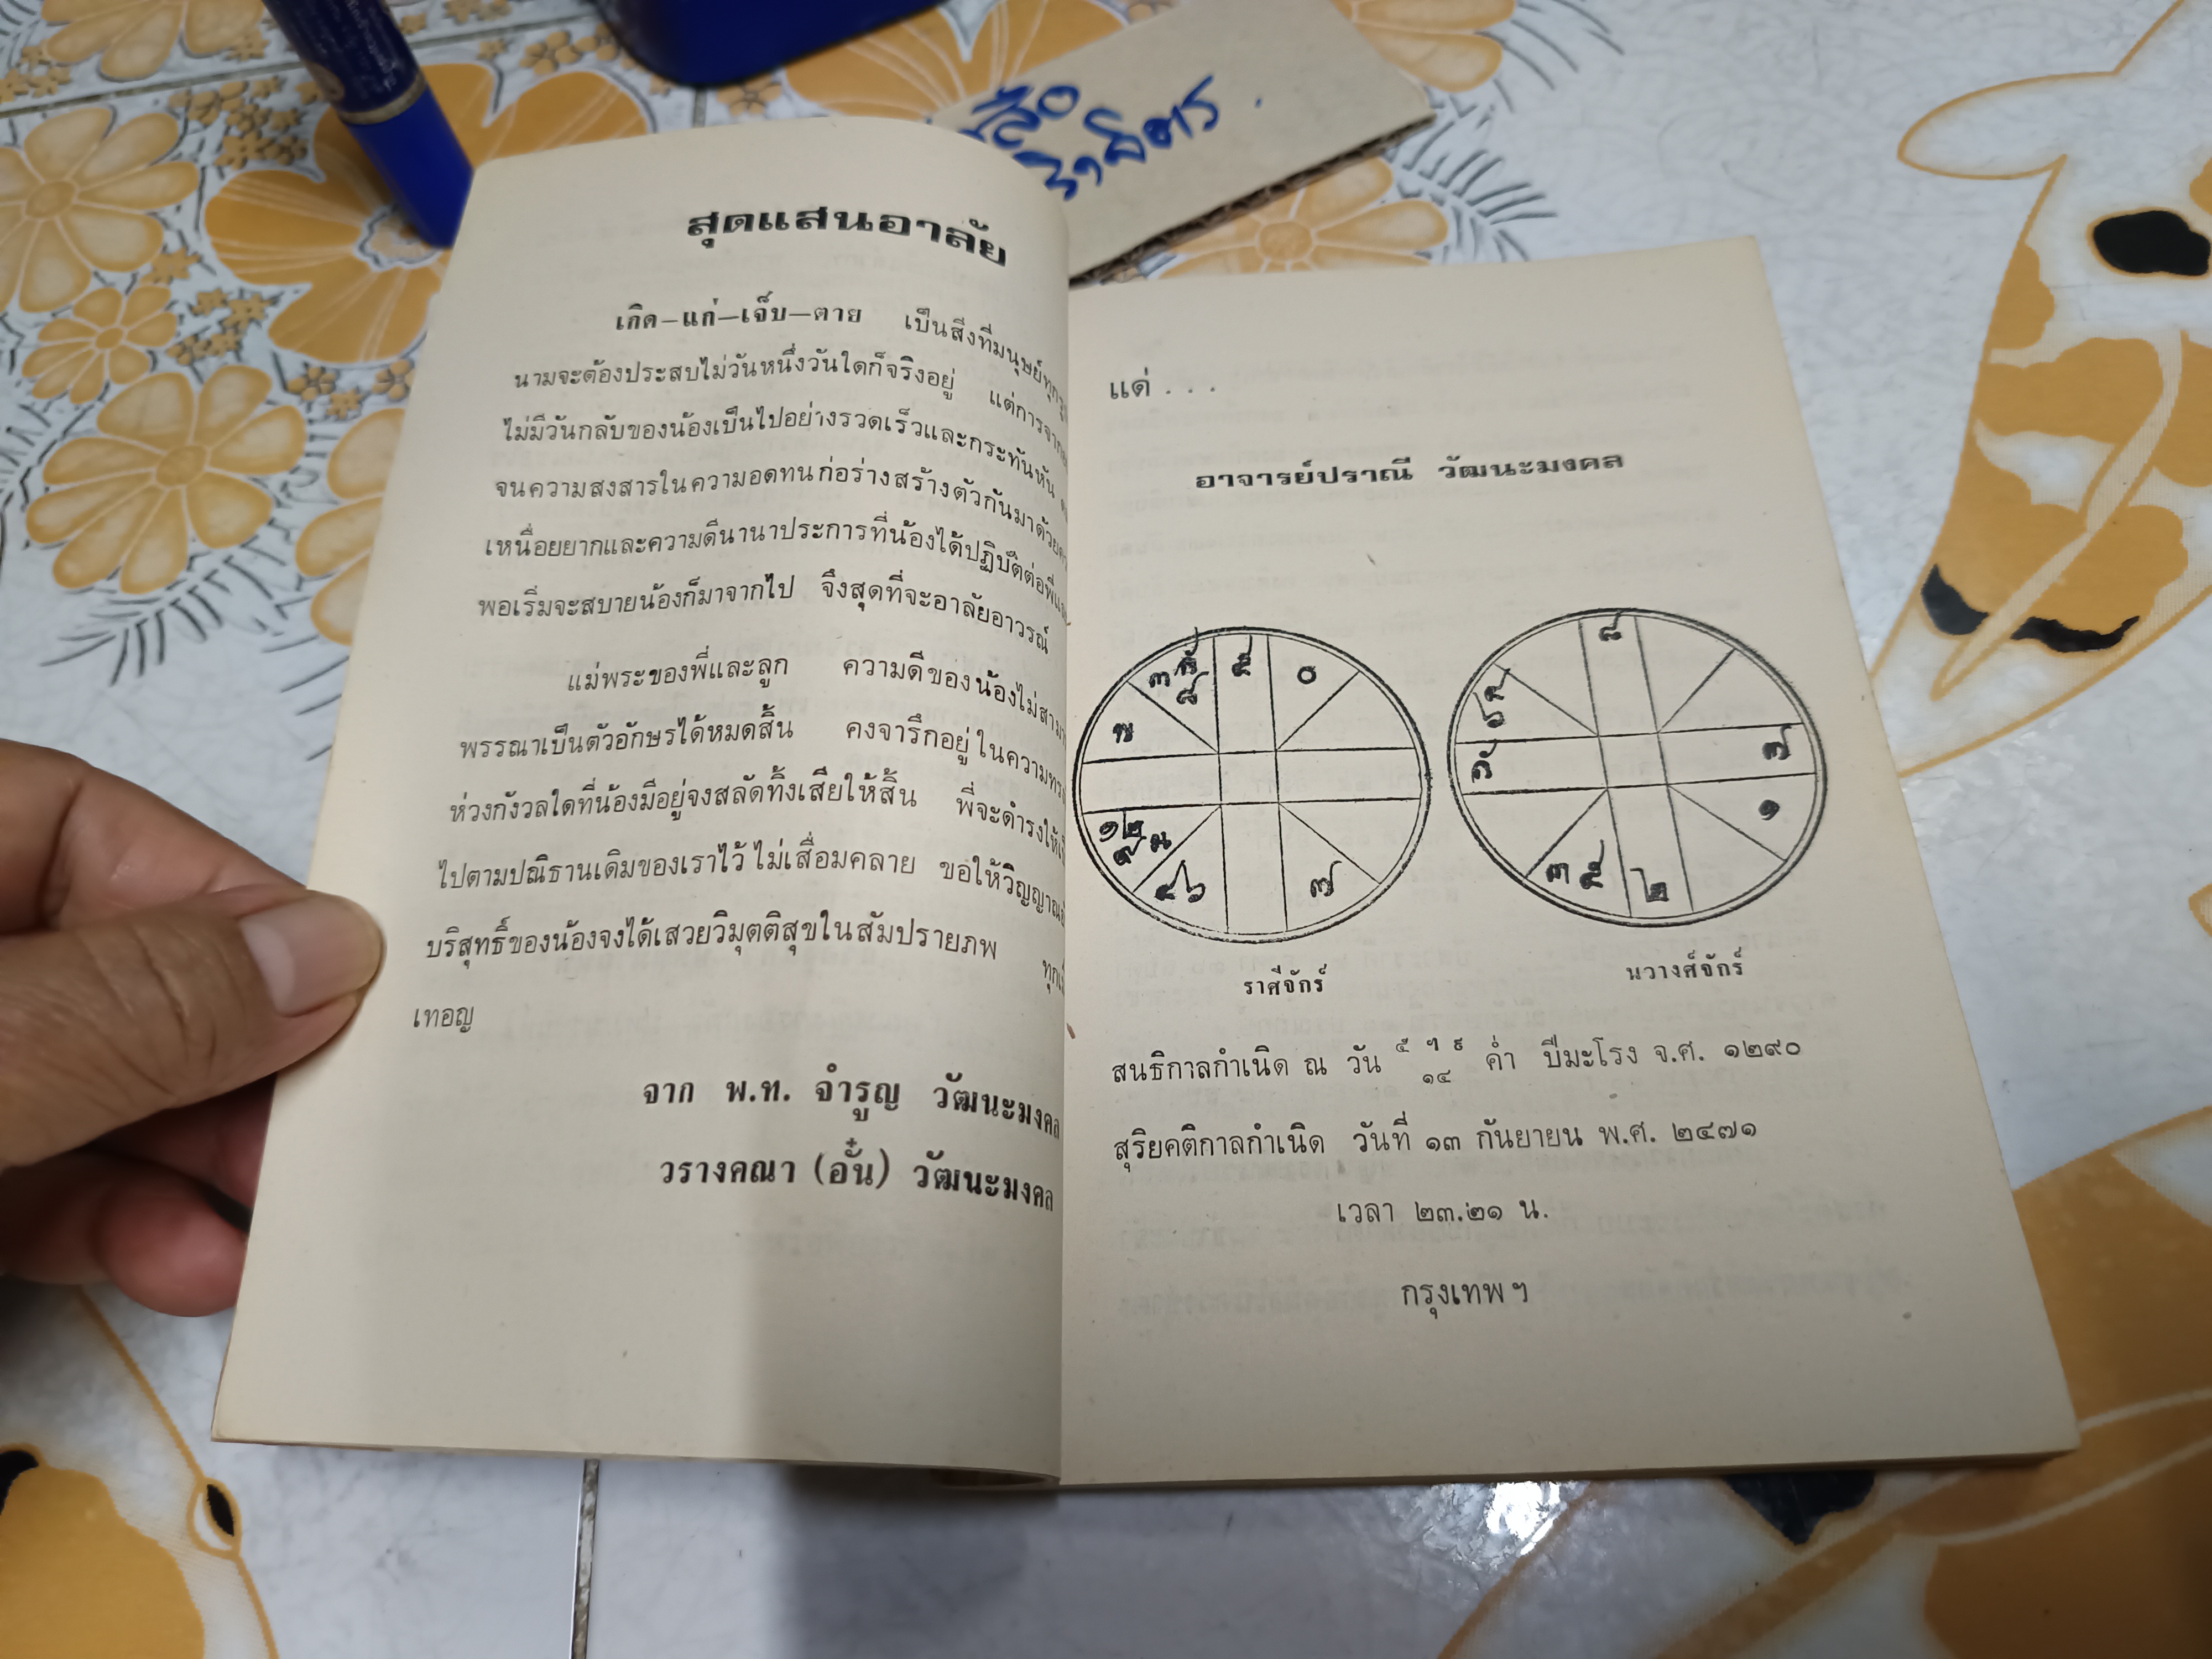 สุดแสนอาลัย
เกิด–แก่–เจ็บ–ตาย เป็นสิ่งที่มนุษย์ทุกรูป
นามจะต้องประสบไม่วันหนึ่งวันใดก็จริงอยู่ แต่การจาก
ไม่มีวันกลับของน้องเป็นไปอย่างรวดเร็วและกระทันหัน
จนความสงสารในความอดทนก่อร่างสร้างตัวกันมาด้วย
เหนื่อยยากและความดีนานาประการที่น้องได้ปฏิบัติต่อพี่
พอเริ่มจะสบายน้องก็มาจากไป จึงสุดที่จะอาลัยอาวรณ์
แม่พระของพี่และลูก ความดีของน้องไม่
พรรณาเป็นตัวอักษรได้หมดสิ้น คงจารึกอยู่ในความ
ห่วงกังวลใดที่น้องมีอยู่จงสลัดทิ้งเสียให้สิ้น พี่จะดำรงให้
ไปตามปณิธานเดิมของเราไว้ไม่เสื่อมคลาย ขอให้วิญญาณ
บริสุทธิ์ของน้องจงได้เสวยวิมุตติสุขในสัมปรายภพ
เทอญ
จาก พ.ท. จำรูญ วัฒนะมงคล
วรางคณา (อั๋น) วัฒนะมงคล
แด่ . . .
อาจารย์ปราณี วัฒนะมงคล
๓ ๘ ๕ ๐
๗
๑ ๒
๔ ๖ ๗
ราศีจักร์
๘
๗
๑
๓ ๕ ๒
นวางศ์จักร์
สนธิกาลกำเนิด ณ วัน ๕ ฯ ๙ ๑๔ ค่ำ ปีมะโรง จ.ศ. ๑๒๙๐
สุริยคติกาลกำเนิด วันที่ ๑๓ กันยายน พ.ศ. ๒๔๗๑
เวลา ๒๓.๒๑ น.
กรุงเทพฯ